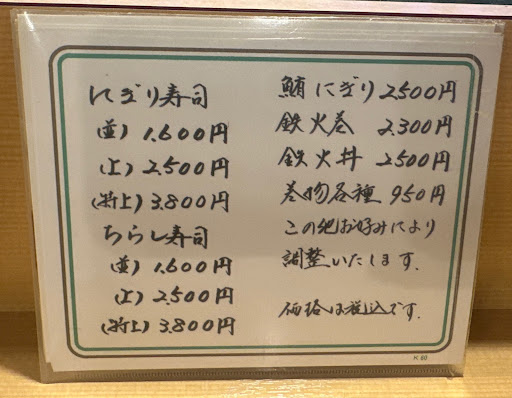 にぎり寿司
(並) 1.600円
(上) 2.500円
(特上) 3.800円
ちらし寿司
(並) 1.600円
(上) 2.500円
(特上) 3.800円
鮪にぎり 2.500円
鉄火巻 2.300円
鉄火丼 2500円
巻物各種 950円
この他お好みにより
調整いたします.
価格は税込です.
K 60